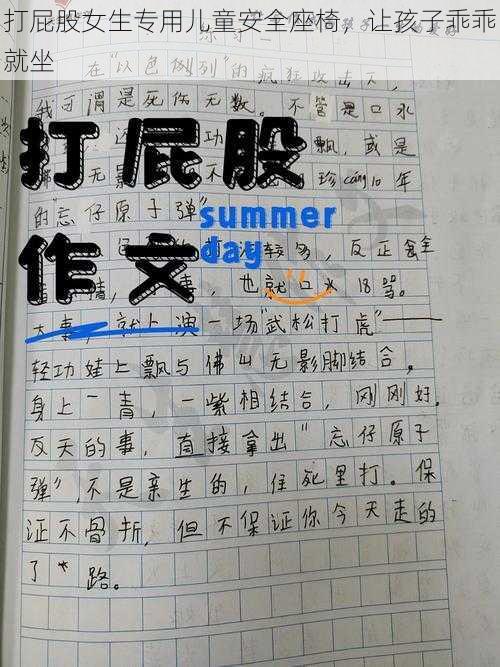 打屁股女生专用儿童安全座椅，让孩子乖乖
就坐
在"以色列列"的疯狂攻击下，
我可谓是死伤无数。不管是口水
功 飘，或是
无 珍cáng10年
的"忘仔原子弹"
打屁股
summer
day
作文
较多，反正食全
情， 事，也就口水18骂。
大事，就上演一场"武松打虎"——
轻功娃上飘与佛山无影脚结合，
身上一青，一紫相结合，刚刚好。
反天的事，直接拿出"忘仔原子
弹"，不是亲生的，往死里打。保
证不骨折，但不保证你今天走的
了*路。